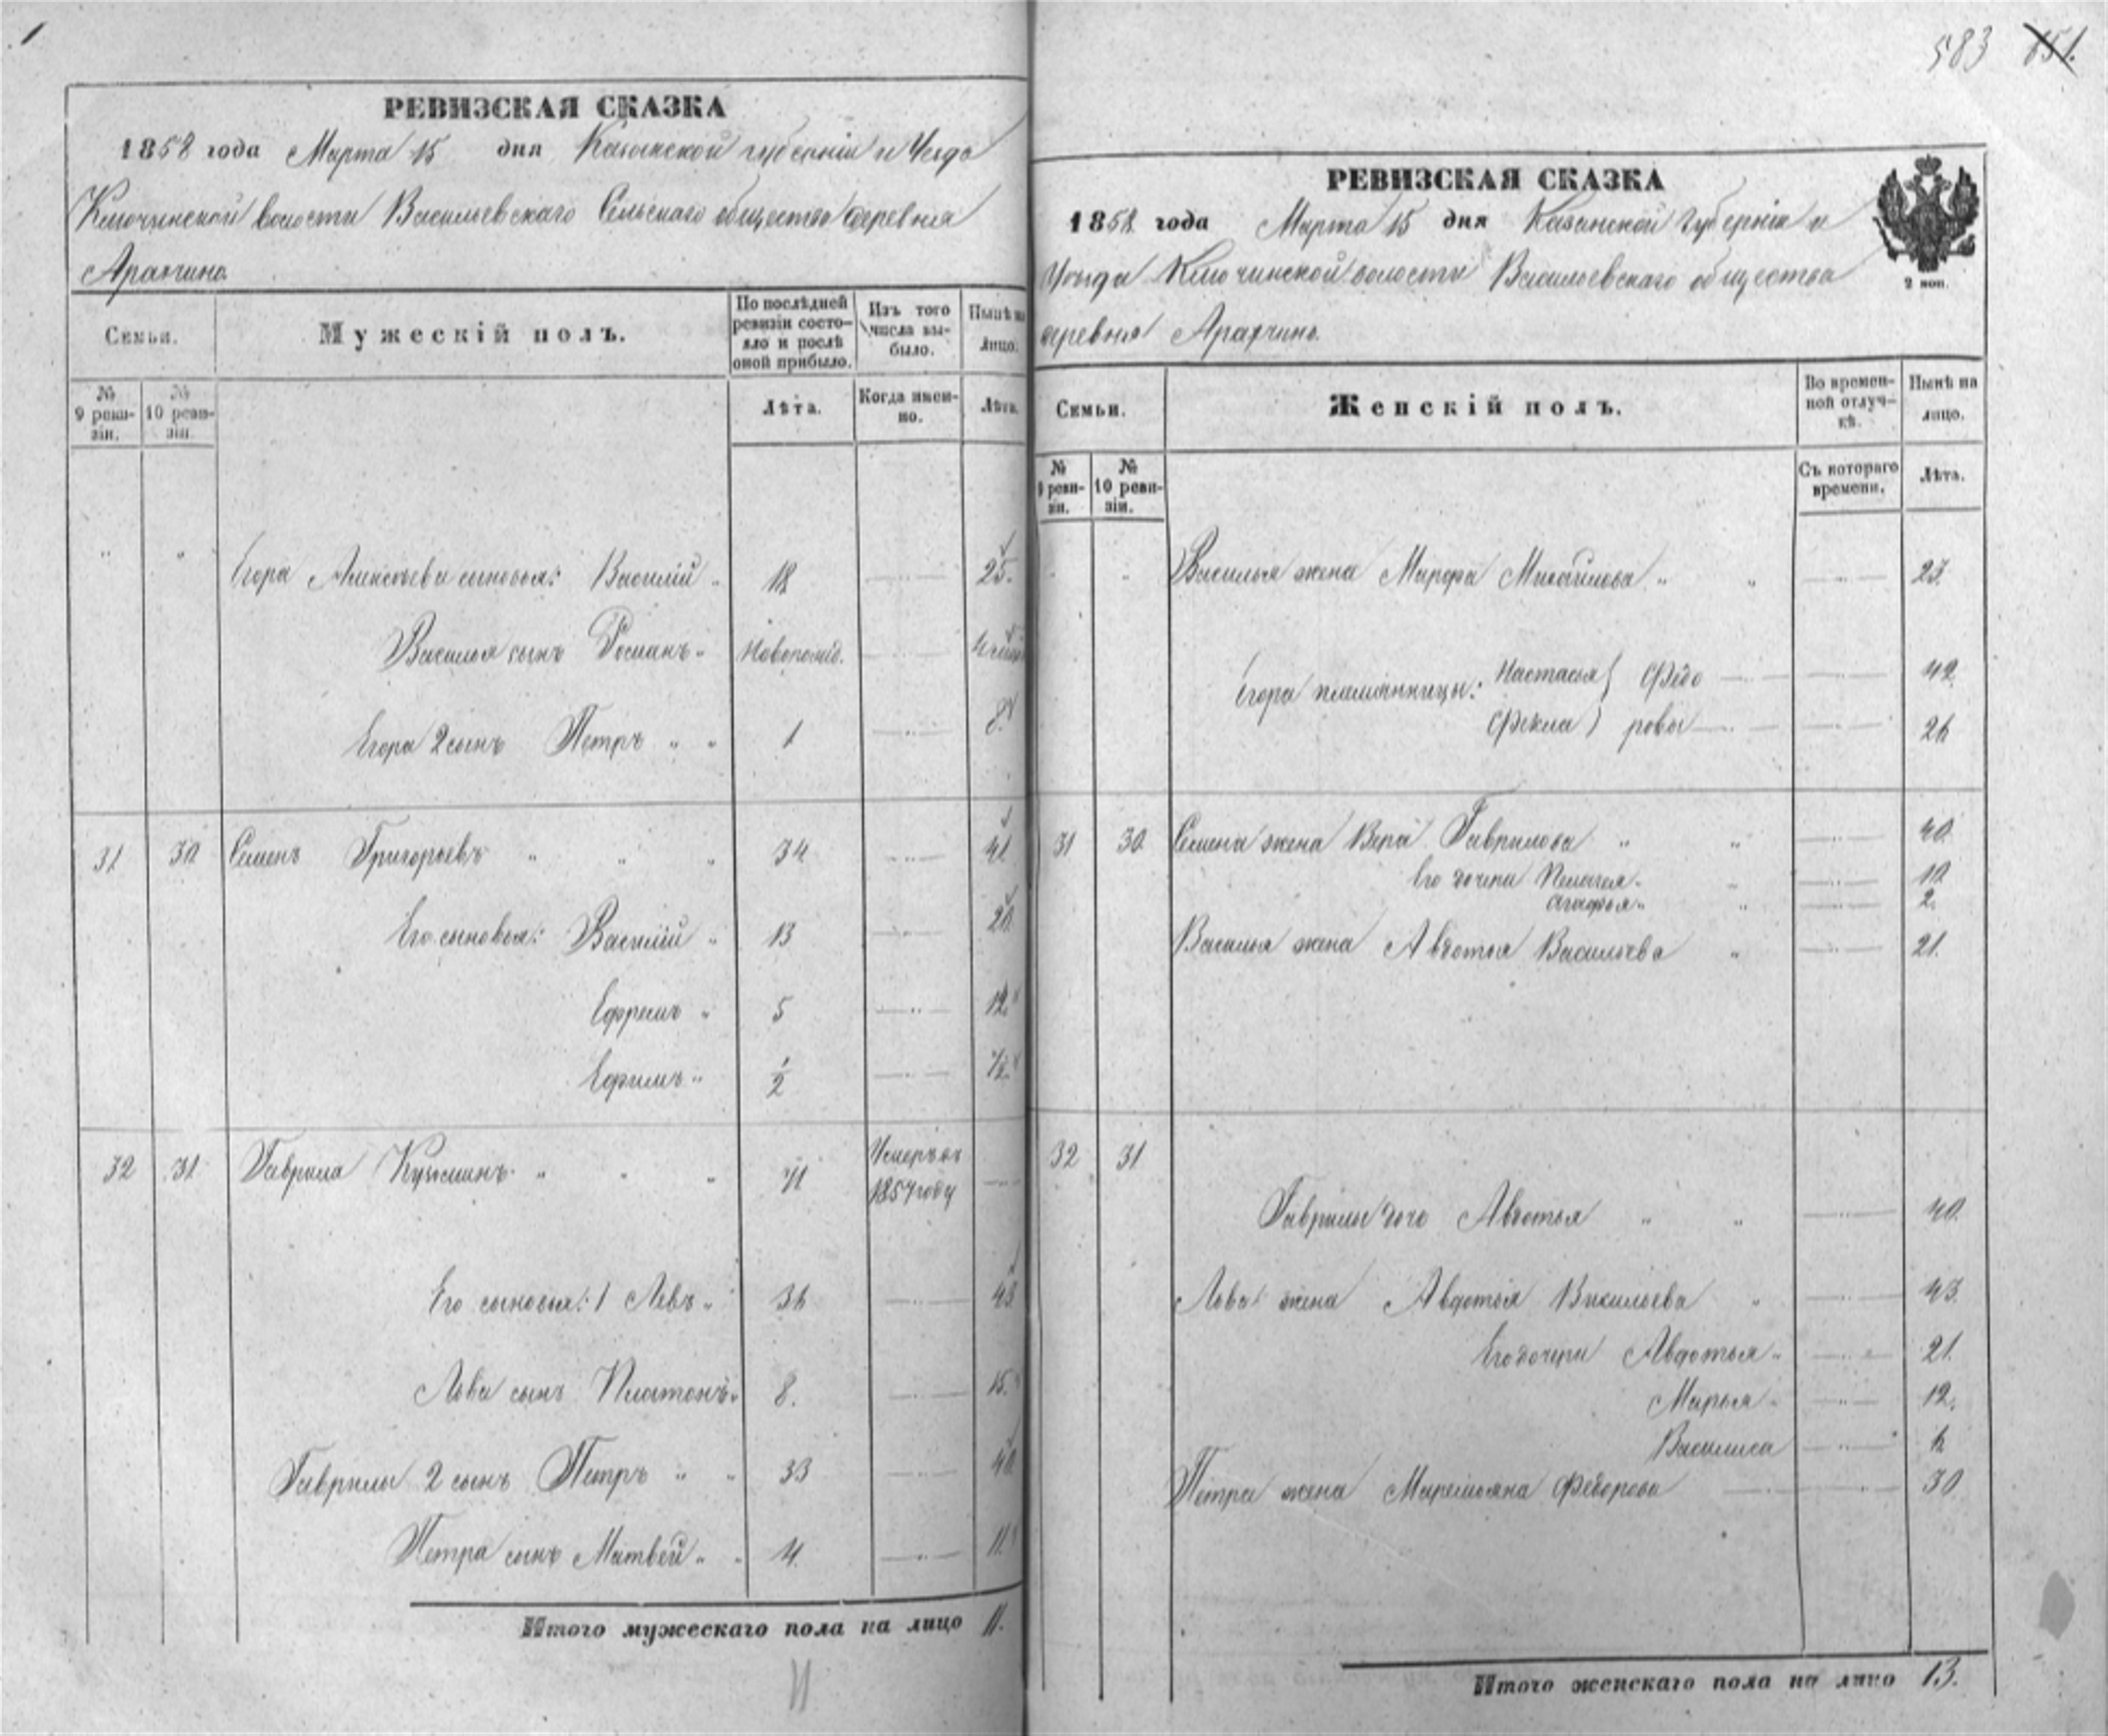 583 851.
РЕВИЗСКАЯ СКАЗКА
1858 года Марта 15 дня Казанской губерніи и Уезда
Ключинской волости Васильевскаго Сельскаго общества деревня
Арахчино
Семьи.
Мужескій полъ.
По послѣдней ревизіи состояло и послѣ оной прибыло.
Изъ того числа выбыло.
Нынѣ на лицо.
№ 9 ревизіи.
№ 10 ревизіи.
Лѣта.
Когда именно.
Лѣта.
" " Егора Алексѣева сыновья: Василій " 18 25.
Василья сынъ Романъ " Новорожд.
Егора 2 сынъ Петръ " " 1 8.
31 30 Семенъ Григорьевъ " " " 34 41
Его сыновья: Василій " 13 20.
Ефремъ " 5 12.
Ефимъ " 1/2
32 31 Гаврила Кузминъ " " " 71 Умеръ въ
1857 году
Его сыновья: 1 Левъ " 36 43
Льва сынъ Платонъ " 8. 15.
Гаврилы 2 сынъ Петръ " " 33 40
Петра сынъ Матвей " " 4. 11.
Итого мужескаго пола на лицо 11.
11
РЕВИЗСКАЯ СКАЗКА
1858 года Марта 15 дня Казанской Губерніи и
Уезда Ключинской волости Васильевскаго общества
деревня Арахчино.
2 коп.
Семьи.
Женскій полъ.
Во временной отлучкѣ.
Нынѣ на лицо.
№ 9 ревизіи.
№ 10 ревизіи.
Съ котораго времени.
Лѣта.
" " Василья жена Марфа Михайлова " " 23.
Егора племянницы: Настасья } Ѳедо 42.
Ѳекла } ровы 26
31 30. Семена жена Вера Гаврилова " " 40.
Его дочери Пелагея " " 10
Агафья " " 2.
Василья жена Авдотья Васильева " 21.
32 31
Гаврилы дочь Авдотья " " 40.
Льва жена Авдотья Васильева " 43.
Его дочери Авдотья " 21.
Марья " 12.
Василиса
Петра жена Маремьяна Ѳедорова 30
Итого женскаго пола на лицо 13.